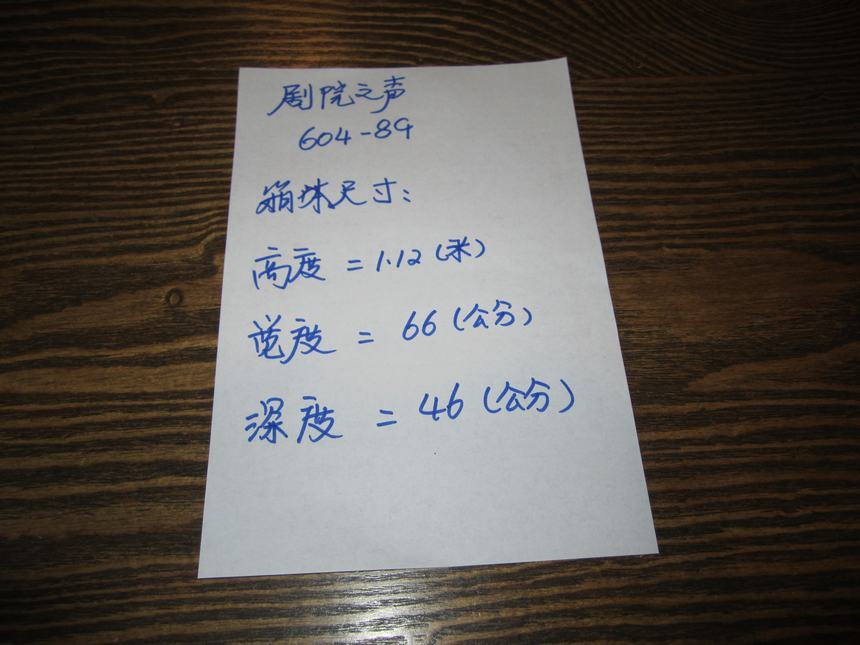 剧院之声
604-89
箱体尺寸:
高度 = 1.12 (米)
宽度 = 66 (公分)
深度 = 46 (公分)